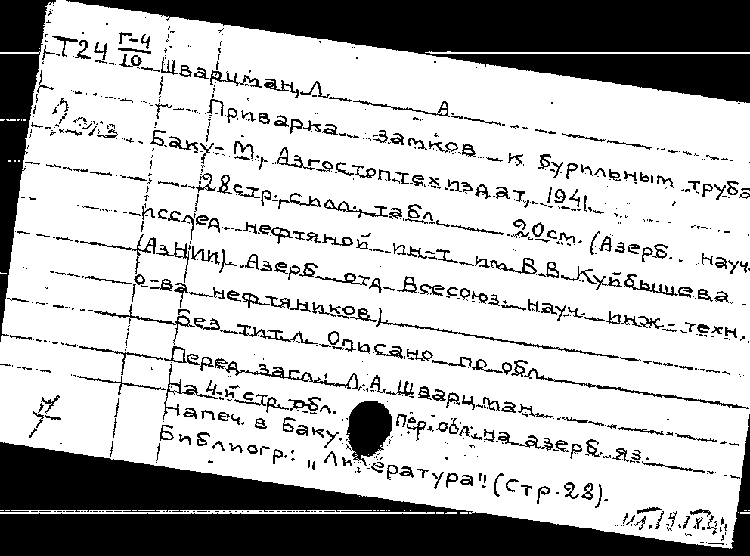 Т24 Г-4/10
Шварцман, Л. А.
2 экз
Приварка замков к бурильным труба
Баку-М., Азгостоптехиздат, 1941.
28стр., с илл., табл. 20см. (Азерб. науч.
исслед. нефтяной ин-т им. В.В. Куйбышева
(АзНИИ) Азерб. отд. Всесоюз. науч. инж.-техн.
о-ва нефтяников)
Без тит.л. Описано по обл.
Перед загл.: Л.А. Шварцман
На 4-й стр. обл. Пер. обл. на азерб. яз.
Напеч. в Баку.
Библиогр.: „Литература". (Стр. 28).